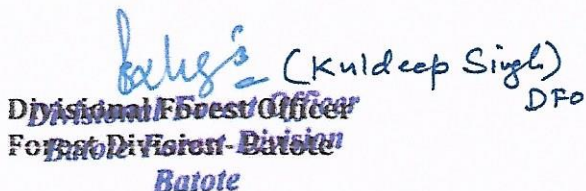 (Kuldeep Singh)
DFO
Divisional Forest Officer
Forest Division - Batote
Divisional Forest Officer
Batote Forest Division
Batote